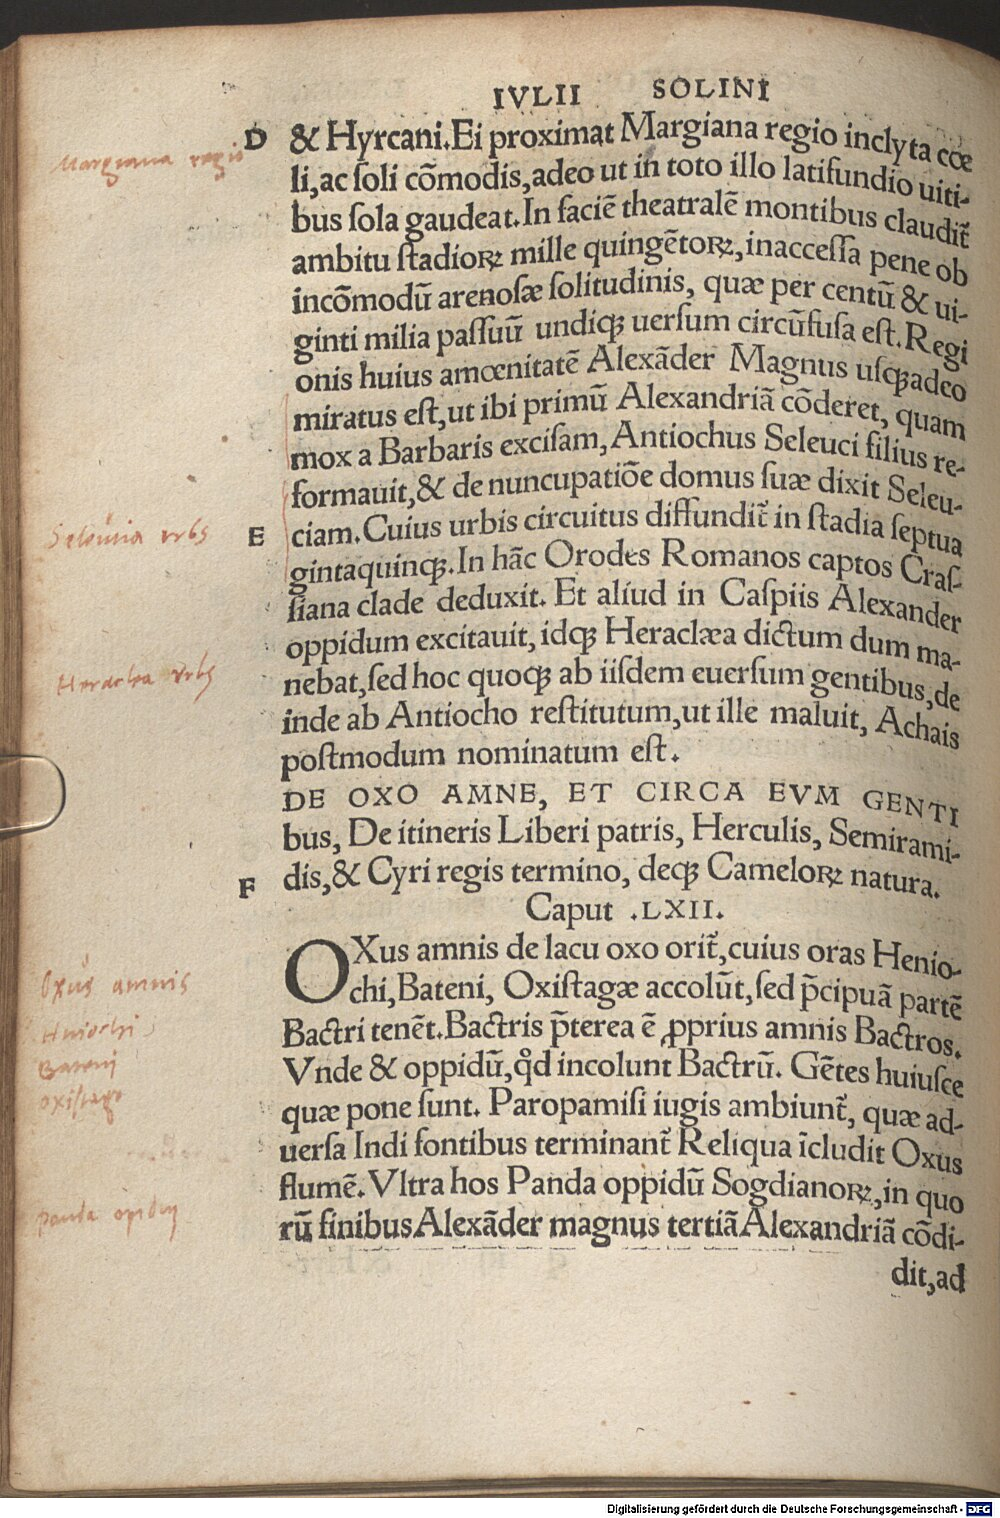 IVLII SOLINI
D & Hyrcani.Ei proximat Margiana regio inclyta cœ
li,ac soli cōmodis,adeo ut in toto illo latifundio uiti-
bus sola gaudeat.In faciē theatralē montibus claudit᷑
ambitu stadioꝝ mille quingētoꝝ,inaccessa pene ob
incōmodū arenosæ solitudinis, quæ per centū & ui-
ginti milia passuū undiqꝫ uersum circūfusa est.Regi
onis huius amœnitatē Alexāder Magnus usqꝫadeo
miratus est,ut ibi primū Alexandriā cōderet, quam
mox a Barbaris excisam,Antiochus Seleuci filius re-
formauit,& de nuncupatiōe domus suæ dixit Seleu-
E ciam.Cuius urbis circuitus diffundit᷑ in stadia septua
gintaquinqꝫ.In hāc Orodes Romanos captos Cras-
siana clade deduxit. Et aliud in Caspiis Alexander
oppidum excitauit, idqꝫ Heraclæa dictum dum ma-
nebat,sed hoc quoqꝫ ab iisdem euersum gentibus,de
inde ab Antiocho restitutum,ut ille maluit, Achais
postmodum nominatum est.
DE OXO AMNE, ET CIRCA EVM GENTI
bus, De itineris Liberi patris, Herculis, Semirami-
F dis,& Cyri regis termino, deqꝫ Cameloꝝ natura.
Caput .LXII.
OXus amnis de lacu oxo orit᷑,cuius oras Henio-
chi,Bateni, Oxistagæ accolūt,sed p̄cipuā partē
Bactri tenēt.Bactris p̄terea ē ꝓprius amnis Bactros.
Vnde & oppidū,qđ incolunt Bactrū. Gētes huiusce
quæ pone sunt. Paropamisi iugis ambiunt᷑, quæ ad-
uersa Indi fontibus terminant᷑ Reliqua īcludit Oxus
flumē.Vltra hos Panda oppidū Sogdianoꝝ,in quo
rū finibus Alexāder magnus tertiā Alexandriā cōdi-
dit,ad
Margiana regio
Seleucia vrbs
Heraclea vrbs
Oxus amnis
Huiochi
Bateni
oxistage
panda opidū